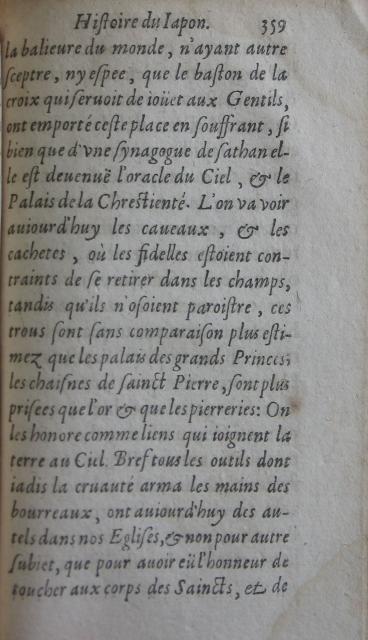 Histoire du Iapon. 359
la balieure du monde, n'ayant autre
sceptre, ny espee, que le baston de la
croix qui seruoit de ioüet aux Gentils,
ont emporté ceste place en souffrant, si
bien que d'vne synagogue de sathan el-
le est deuenuë l'oracle du Ciel, & le
Palais de la Chrestienté. L'on va voir
auiourd'huy les caueaux, & les
cachetes, où les fidelles estoient con-
traints de se retirer dans les champs,
tandis qu'ils n'osoient paroistre, ces
trous sont sans comparaison plus esti-
mez que les palais des grands Princes;
les chaisnes de sainct Pierre, sont plus
prisees que l'or & que les pierreries: On
les honore comme liens qui ioignent la
terre au Ciel. Bref tous les outils dont
iadis la cruauté arma les mains des
bourreaux, ont auiourd'huy des au-
tels dans nos Eglises, & non pour autre
subiet, que pour auoir eü l'honneur de
toucher aux corps des Saincts, et de